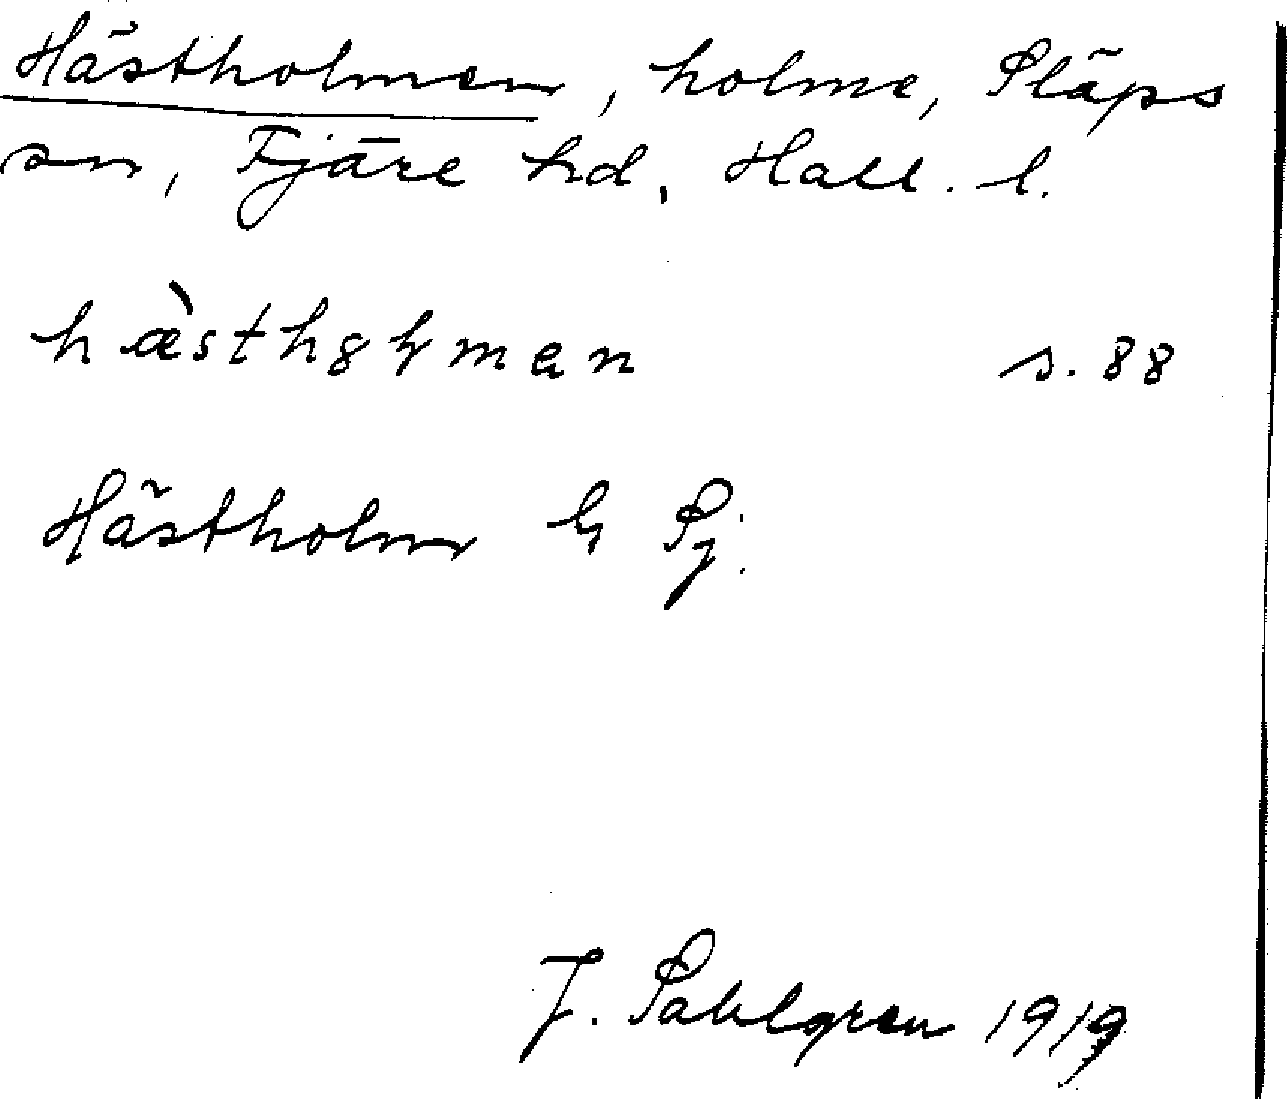 Hästholmen, holme, Släps
sn, Fjäre hd, Hall. l.
hæ̀sthȣɫmən s. 88
Hästholm
J. Sahlgren 1919